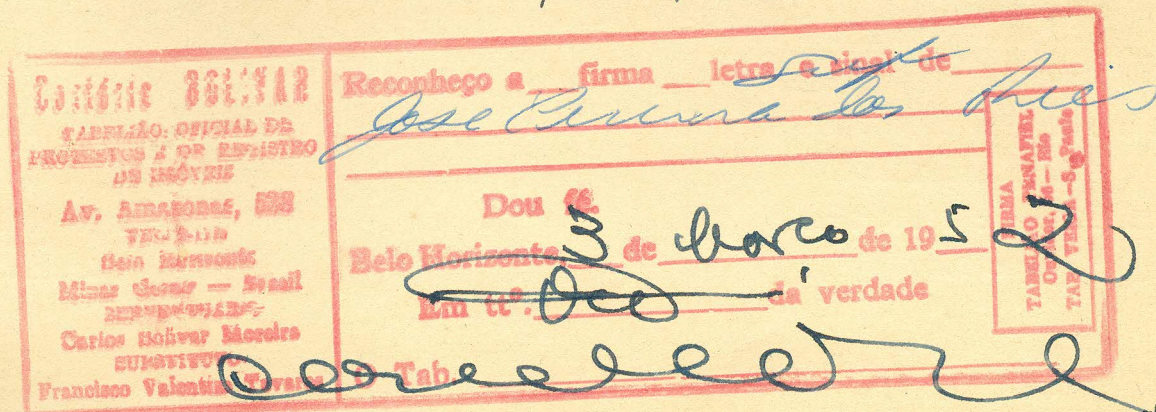 Cartório BOLIVAR
TABELIÃO: OFICIAL DE
PROTESTOS E DE REGISTRO
DE IMÓVEIS
Av. Amazonas,
Belo Horizonte
Minas Gerais — Brasil
Carlos Bolivar Moreira
SUBSTITUTO
Francisco Valentim Tavares
Reconheço a firma letra e sinal de
José Pereira dos Reis
Dou fé.
Belo Horizonte, 3 de Março de 1952
Em tº. da verdade
O Tab.
FIRMA
TABELIÃO PENAFIEL
Ouvidor, 56 — Rio
TAB. VEIGA — S. Paulo